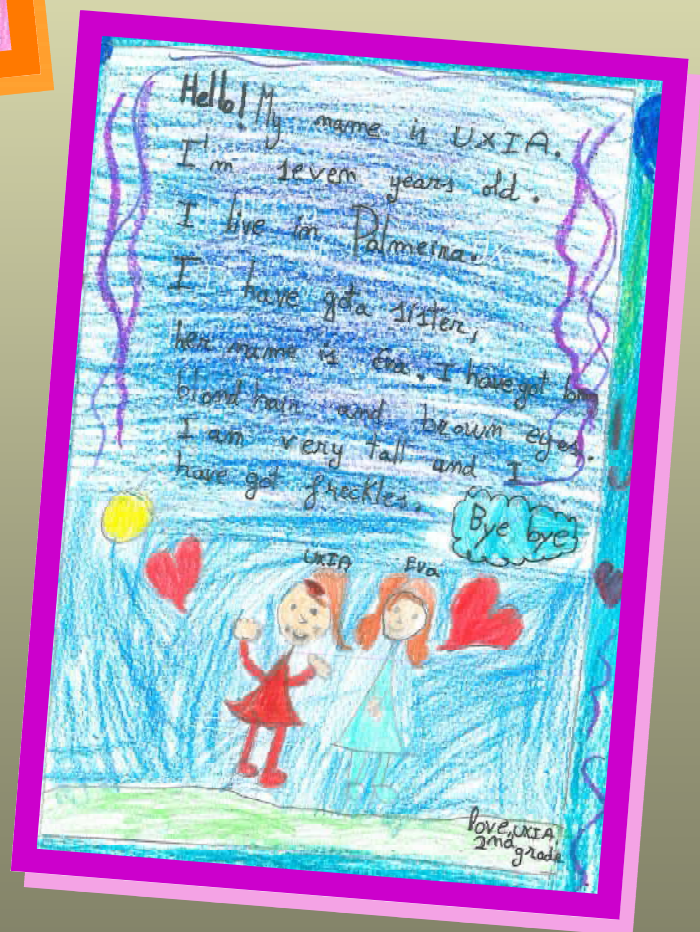 Hello! My name is UXIA.
I'm seven years old.
I live in Palmeira.
I have got a sister,
her name is Eva. I have got long
blond hair and brown eyes.
I am very tall and I
have got freckles.
Bye bye
UXIA Eva
love, UXIA
2nd grade